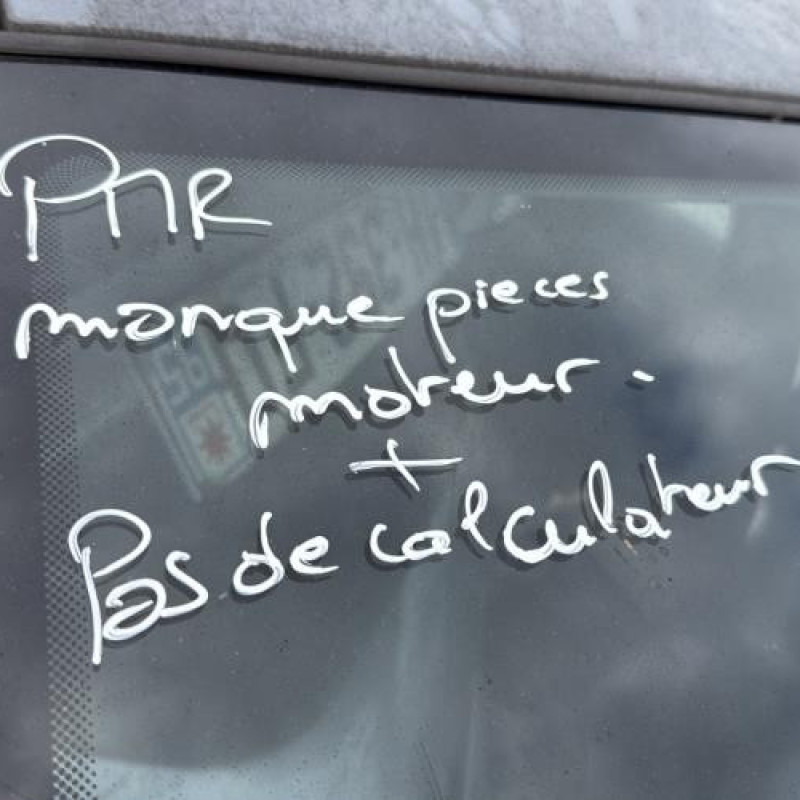 PNR
manque pieces
moteur.
+
Pas de calculateur